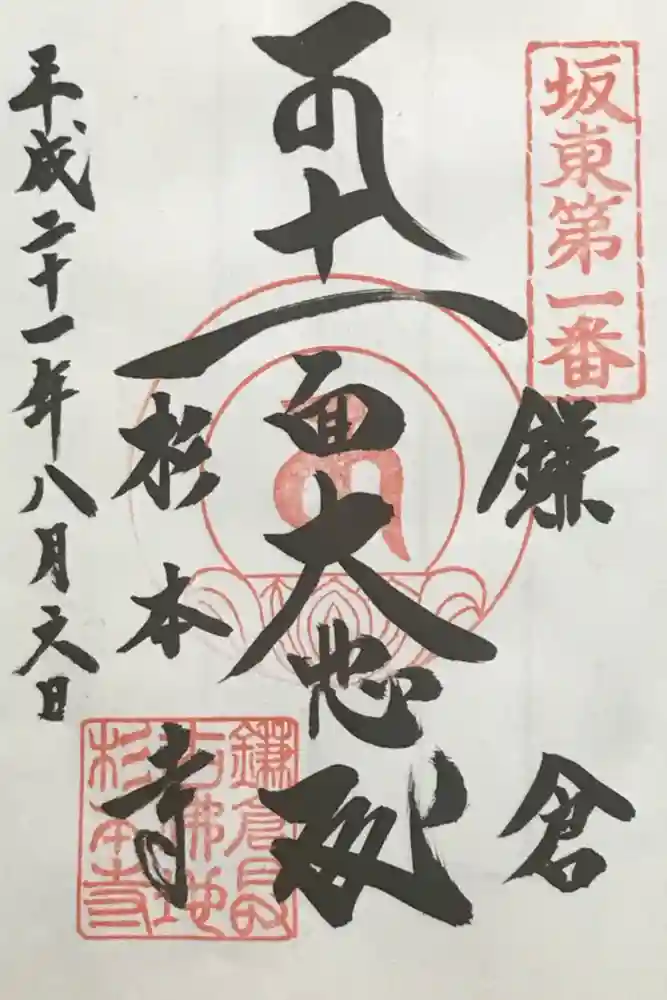 坂東第一番
鎌倉
十一面大悲殿
杉本寺
平成二十一年八月六日
鎌倉最
古佛地
杉本寺